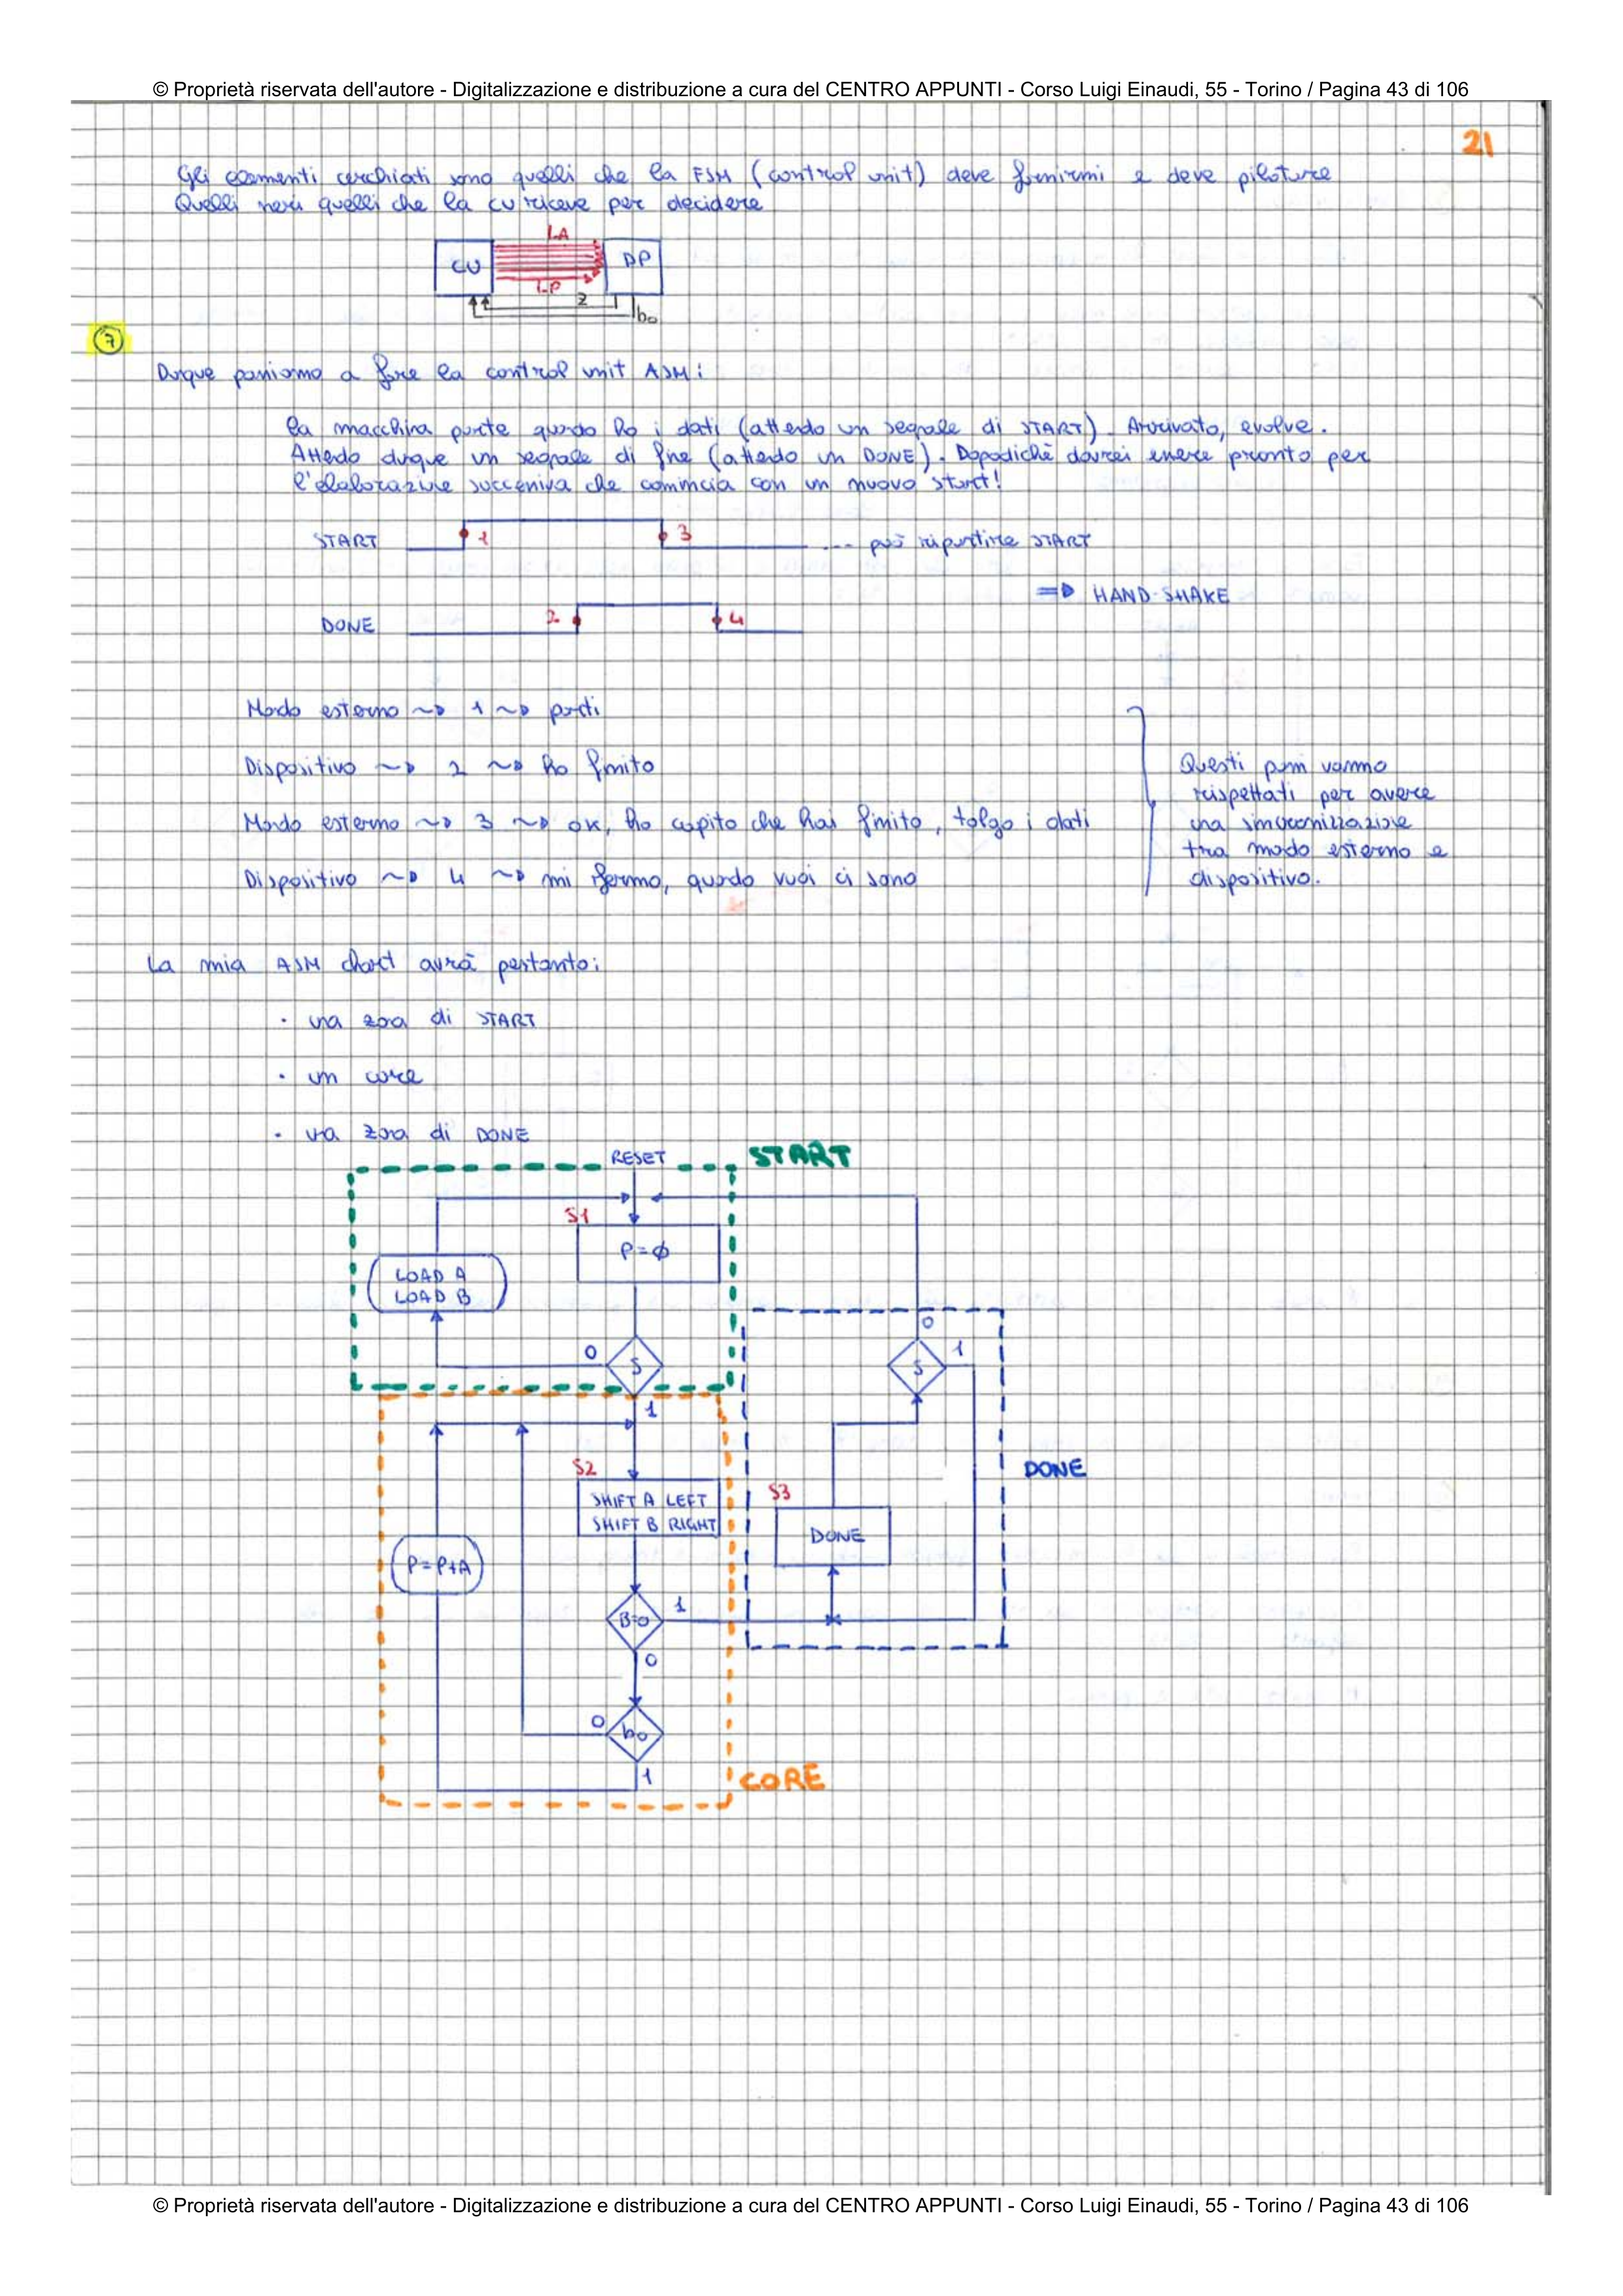 © Proprietà riservata dell'autore - Digitalizzazione e distribuzione a cura del CENTRO APPUNTI - Corso Luigi Einaudi, 55 - Torino / Pagina 43 di 106
21
Gli elementi cerchiati sono quelli che la FSM (control unit) deve fornirmi e deve pilotare
Quelli neri quelli che la CU riceve per decidere
LA
CU
DP
LP
Z
b0
7
Dunque passiamo a fare la control unit ASM:
la macchina parte quando ho i dati (attendo un segnale di START). Arrivato, evolve.
Attendo dunque un segnale di fine (attendo un DONE). Dopodichè dovrei essere pronto per
l'elaborazione successiva che comincia con un nuovo start!
START
1
3
... può ripartire START
=> HAND-SHAKE
DONE
2
4
Mondo esterno ~> 1 ~> parti
Dispositivo ~> 2 ~> ho finito
Mondo esterno ~> 3 ~> ok, ho capito che hai finito, tolgo i dati
Dispositivo ~> 4 ~> mi fermo, quando vuoi ci sono
Questi passi vanno
rispettati per avere
una sincronizzazione
tra mondo esterno e
dispositivo.
La mia ASM chart avrà pertanto:
· una zona di START
· un core
· una zona di DONE
RESET
START
S1
P=ϕ
LOAD A
LOAD B
0
S
1
0
S
1
S2
SHIFT A LEFT
SHIFT B RIGHT
S3
DONE
DONE
P=P+A
B=0
1
0
0
b0
1
CORE
© Proprietà riservata dell'autore - Digitalizzazione e distribuzione a cura del CENTRO APPUNTI - Corso Luigi Einaudi, 55 - Torino / Pagina 43 di 106